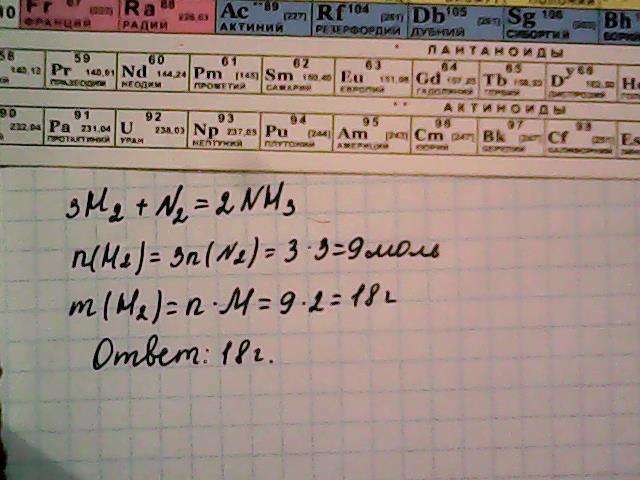 Fr 87 Ra 88 226,03 Ac **89 [227] Rf 104 [261] Db 105 Sg 106 Bh
ФРАНЦИЙ РАДИЙ АКТИНИЙ РЕЗЕРФОРДИЙ ДУБНИЙ СИБОРГИЙ
* ЛАНТАНОИДЫ
58 59 60 61 62 63 64 65 66
140,12 Pr 140,91 Nd 144,24 Pm [145] Sm 150,40 Eu 151,96 Gd 157,25 Tb Dy Ho
ПРАЗЕОДИМ НЕОДИМ ПРОМЕТИЙ САМАРИЙ ЕВРОПИЙ ГАДОЛИНИЙ ТЕРБИЙ ДИСПРОЗИЙ
** АКТИНОИДЫ
90 91 92 93 94 95 96 97 98
232,04 Pa 231,04 U 238,03 Np 237,05 Pu [244] Am [243] Cm [247] Bk Cf Es
ПРОТАКТИНИЙ УРАН НЕПТУНИЙ ПЛУТОНИЙ АМЕРИЦИЙ КЮРИЙ БЕРКЛИЙ КАЛИФОРНИЙ
3H₂ + N₂ = 2NH₃
n(H₂) = 3n(N₂) = 3·3 = 9 моль
m(H₂) = n·M = 9·2 = 18 г
Ответ: 18 г.